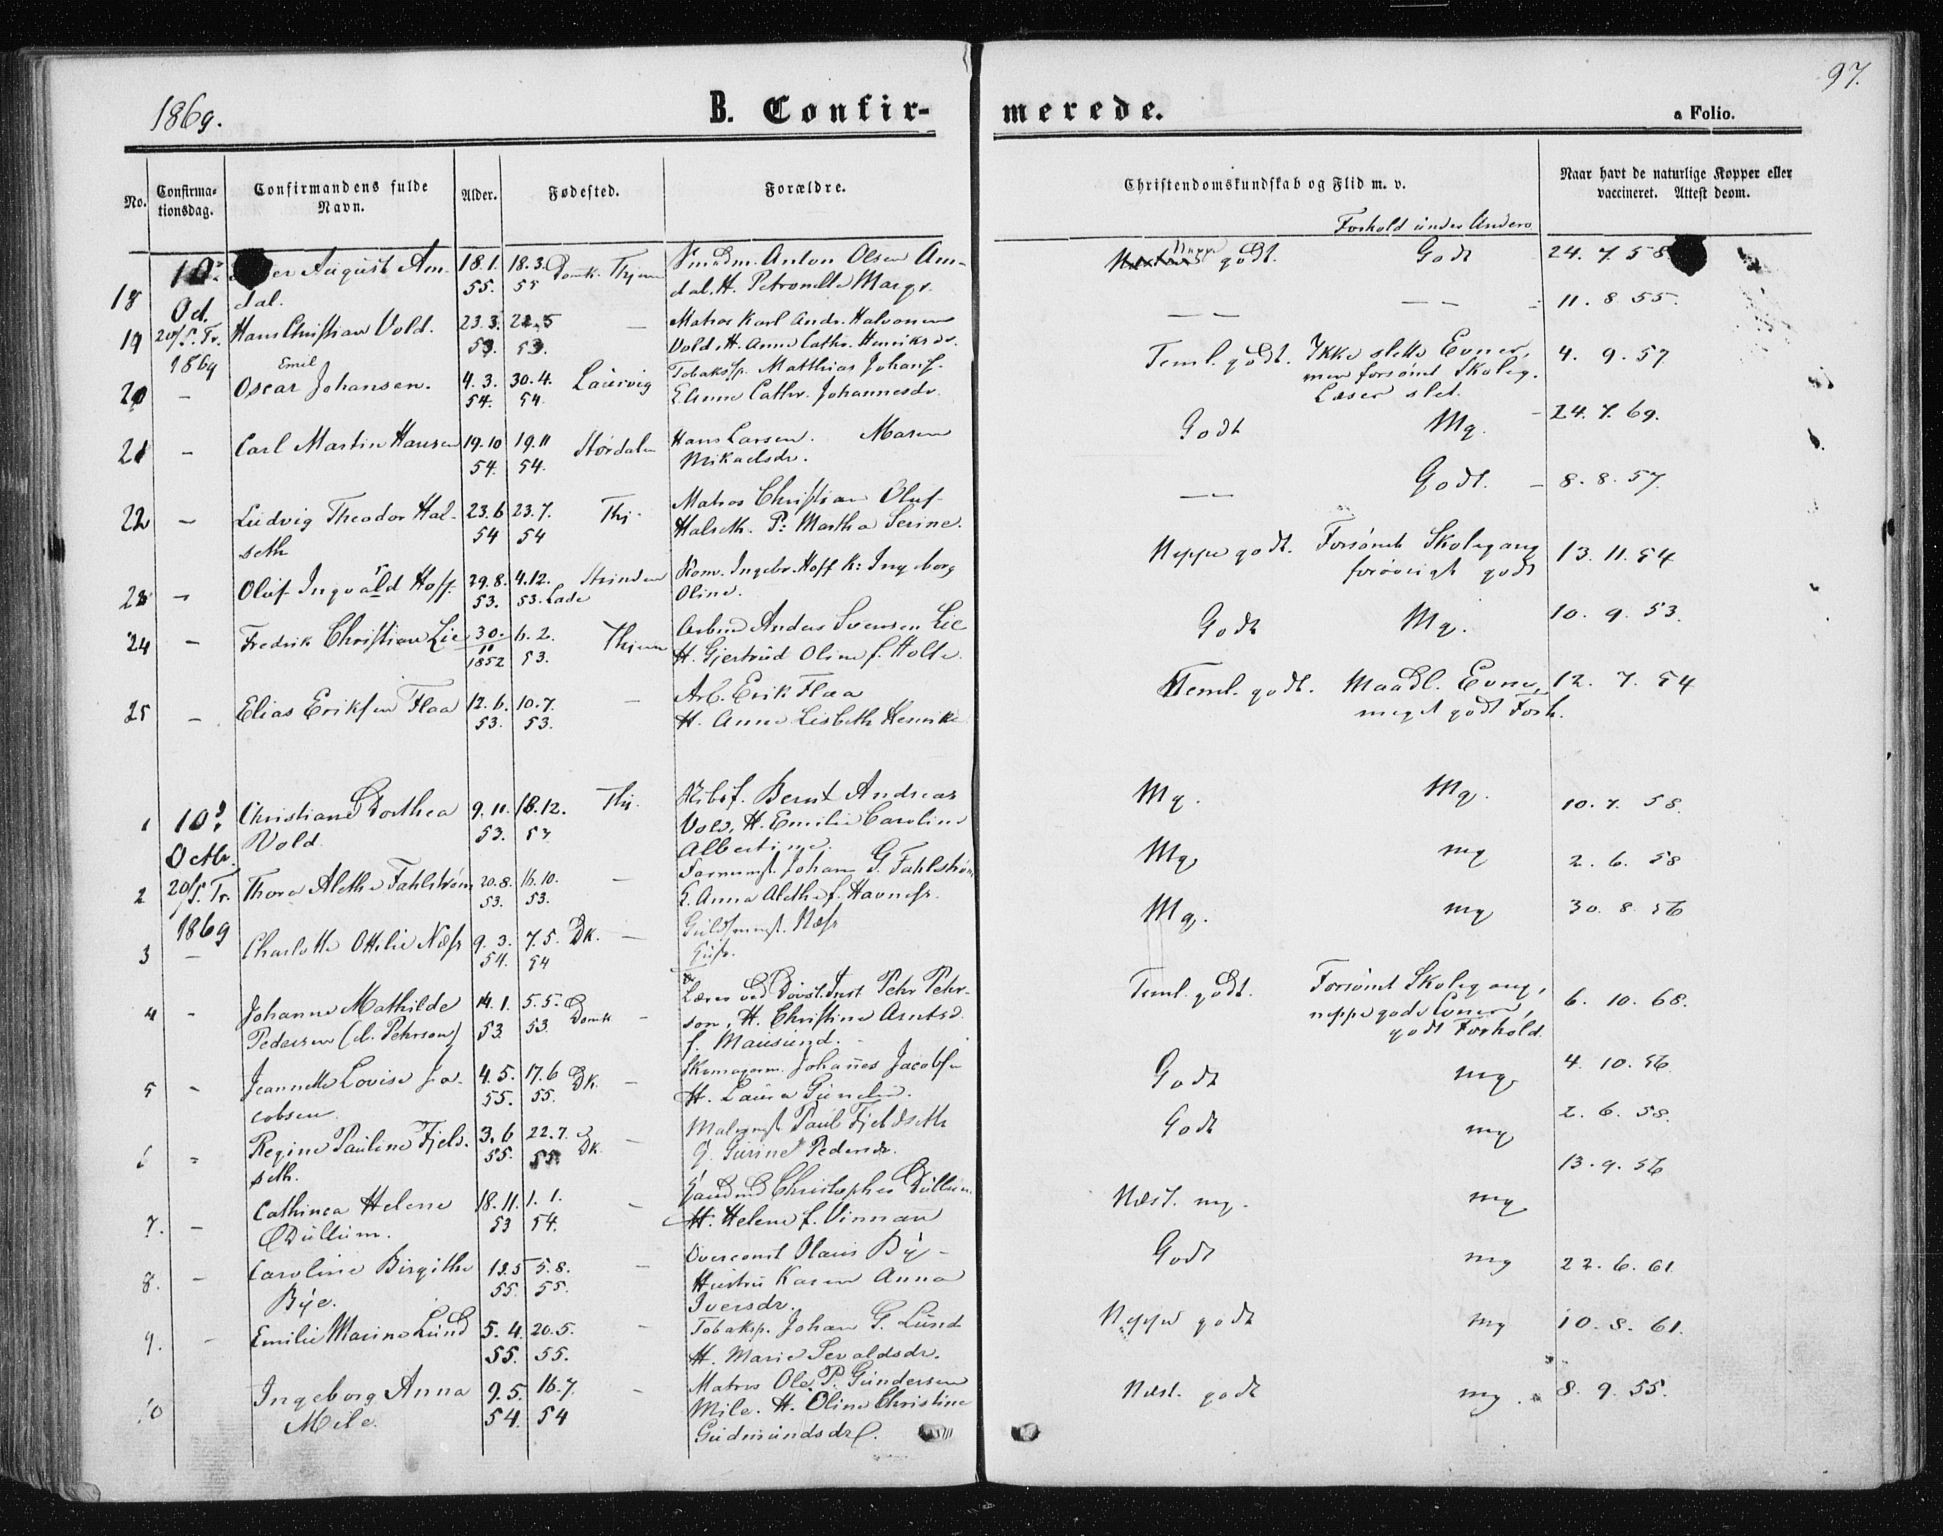 97.
1869.
B. Confir-
merede.
a Folio.
No.
Confirma-
tionsdag.
Confirmandens fulde
Navn.
Alder.
Fødested.
Forældre.
Christendomskundskab og Flid m. v.
Forhold under Andern
Naar havt de naturlige Kopper eller
vaccineret. Attest derom.
18 10. Od. August Am- 18.1. 18.3. Domk. Thjem Anton Olsen Am- Neppe godt. Godt 24. 7. 58
dal. 55. 55 dal. H. Petronelle Margr.
19 20/S. Tr. Hans Christian Vold. 23.3. 21.5 — Matros Karl Andr. Halvorsen — — — — 11. 8. 55.
1869 53. 53. Vold. H. Anne Cathr. Henriksdr.
Emil
20 - Oscar Johansen. 4.3. 30.4. Laurvig Tobakssp. Matthias Johans. Teml. godt. Ikke slette Evner, 4. 9. 57
54. 54. E. Anne Cathr. Johannesdr. men forsømt Skoleg.
Læser slet.
21 - Carl Martin Hansen 19.10 19.11 Størdalen Hans Larsen. Maren Godt Mg. - 24. 7. 69.
54. 54. Mikaelsdr.
22 - Ludvig Theodor Hal- 23.6 23.7. Thj. Matros Christian Oluf — — Godt. - 8. 8. 57.
seth 54 54 Halseth. P: Martha Serine.
23 - Oluf Ingvald Hoff. 29.8. 4.12. Strinden Kom. Ingebr. Hoff K: Ingeborg Neppe godt. Forsømt Skolegang 13. 11. 54
53. 53. Lade Oline. forøvrigt godt
24 - Fredrik Christian Lie 30. 6.2. Thjem Arbmd Anders Svensen Lie Godt Mg. 10. 9. 53.
11 1852 53. H. Gjertrud Oline f. Holte.
25 - Elias Eriksen Flaa 12.6. 10.7. — Arb. Erik Flaa Teml. godt. Maadl. Evner, 12. 7. 54
53. 53. H. Anne Lisbeth Henrik meget godt Forh.
1 10. Christiane Dorthea 9.11. 18.12. Thj. Bernt Andreas Mg. Mg. 10. 7. 58.
Octbr. Vold. 53. 53 Vold, H. Emilie Caroline
Albertine.
2 20/S. Tr. Thora Alethe Fahlstrøm 20.8. 16.10. — Johan G. Fahlstrøm Mg. mg 2. 6. 58
53. 53. E. Anna Alethe f. Havnes.
3 1869 - Charlotte Ottilie Næss 9.3. 7.5. DK. — Guldsmmst. Næss Mg. mg 30. 8. 56
54. 54
4 - Johanne Mathilde 14.1. 5.5. Domk — Lærer ved Døvst. Inst Pehr Pehr- Teml. godt. Forsømt Skolegang, 6. 10. 68.
Pedersen (d. Pehrson) 53. 53. son, H. Christine Arntsd. neppe gode Evner,
f. Mausund. godt Forhold.
5 - Jeannette Lovise Ja- 4.5. 17.6 DK. — Skomagerm. Johannes Jacobsen Godt mg. 4. 10. 56.
cobsen 55. 55. H. Laura
6 - Regine Pauline Fjeld- 3.6 22.7. DK. — Malermst Paul Fjeldseth Godt mg 2. 6. 58.
seth. 55. 55. Gurine Pedersdr.
7. - Cathinca Helene 18.11. 1.1. — Christopher Dullum Næst. mg. mg 13. 9. 56
Dullum. 53 54. H. Helene f. Vinnan
8. - Caroline Birgithe 13.5 5.8. — Overconst Olaus Bye - Godt mg 22. 6. 61.
Bye. 55. 55. Hustru Karen Anna
Iversdr.
9. - Emilie Marine Lund 5.4. 20.5. — Tobaksp. Johan G. Lund Neppe godt mg 10. 8. 61.
55. 55. H. Marie Sevaldsdr.
10 Ingeborg Anna 9.5. 16.7. — Matros Ole P. Gundersen Næst. godt mg. 8. 9. 55.
Mile. 54. 54 Mile. H. Oline Christine
Gudmundsdr.